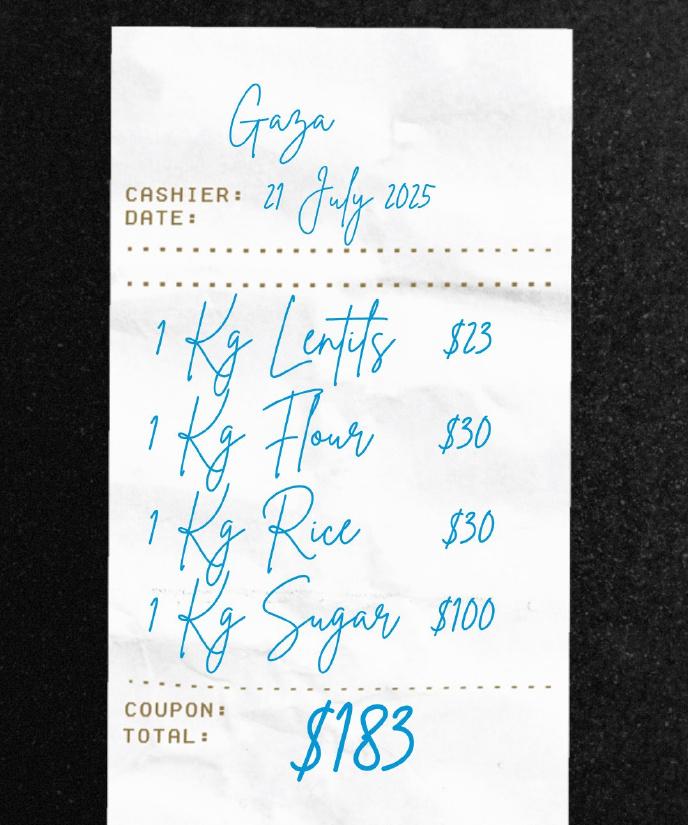 Gaza
CASHIER: 21 July 2025
DATE:
1 Kg Lentils $23
1 Kg Flour $30
1 Kg Rice $30
1 Kg Sugar $100
COUPON:
TOTAL: $183